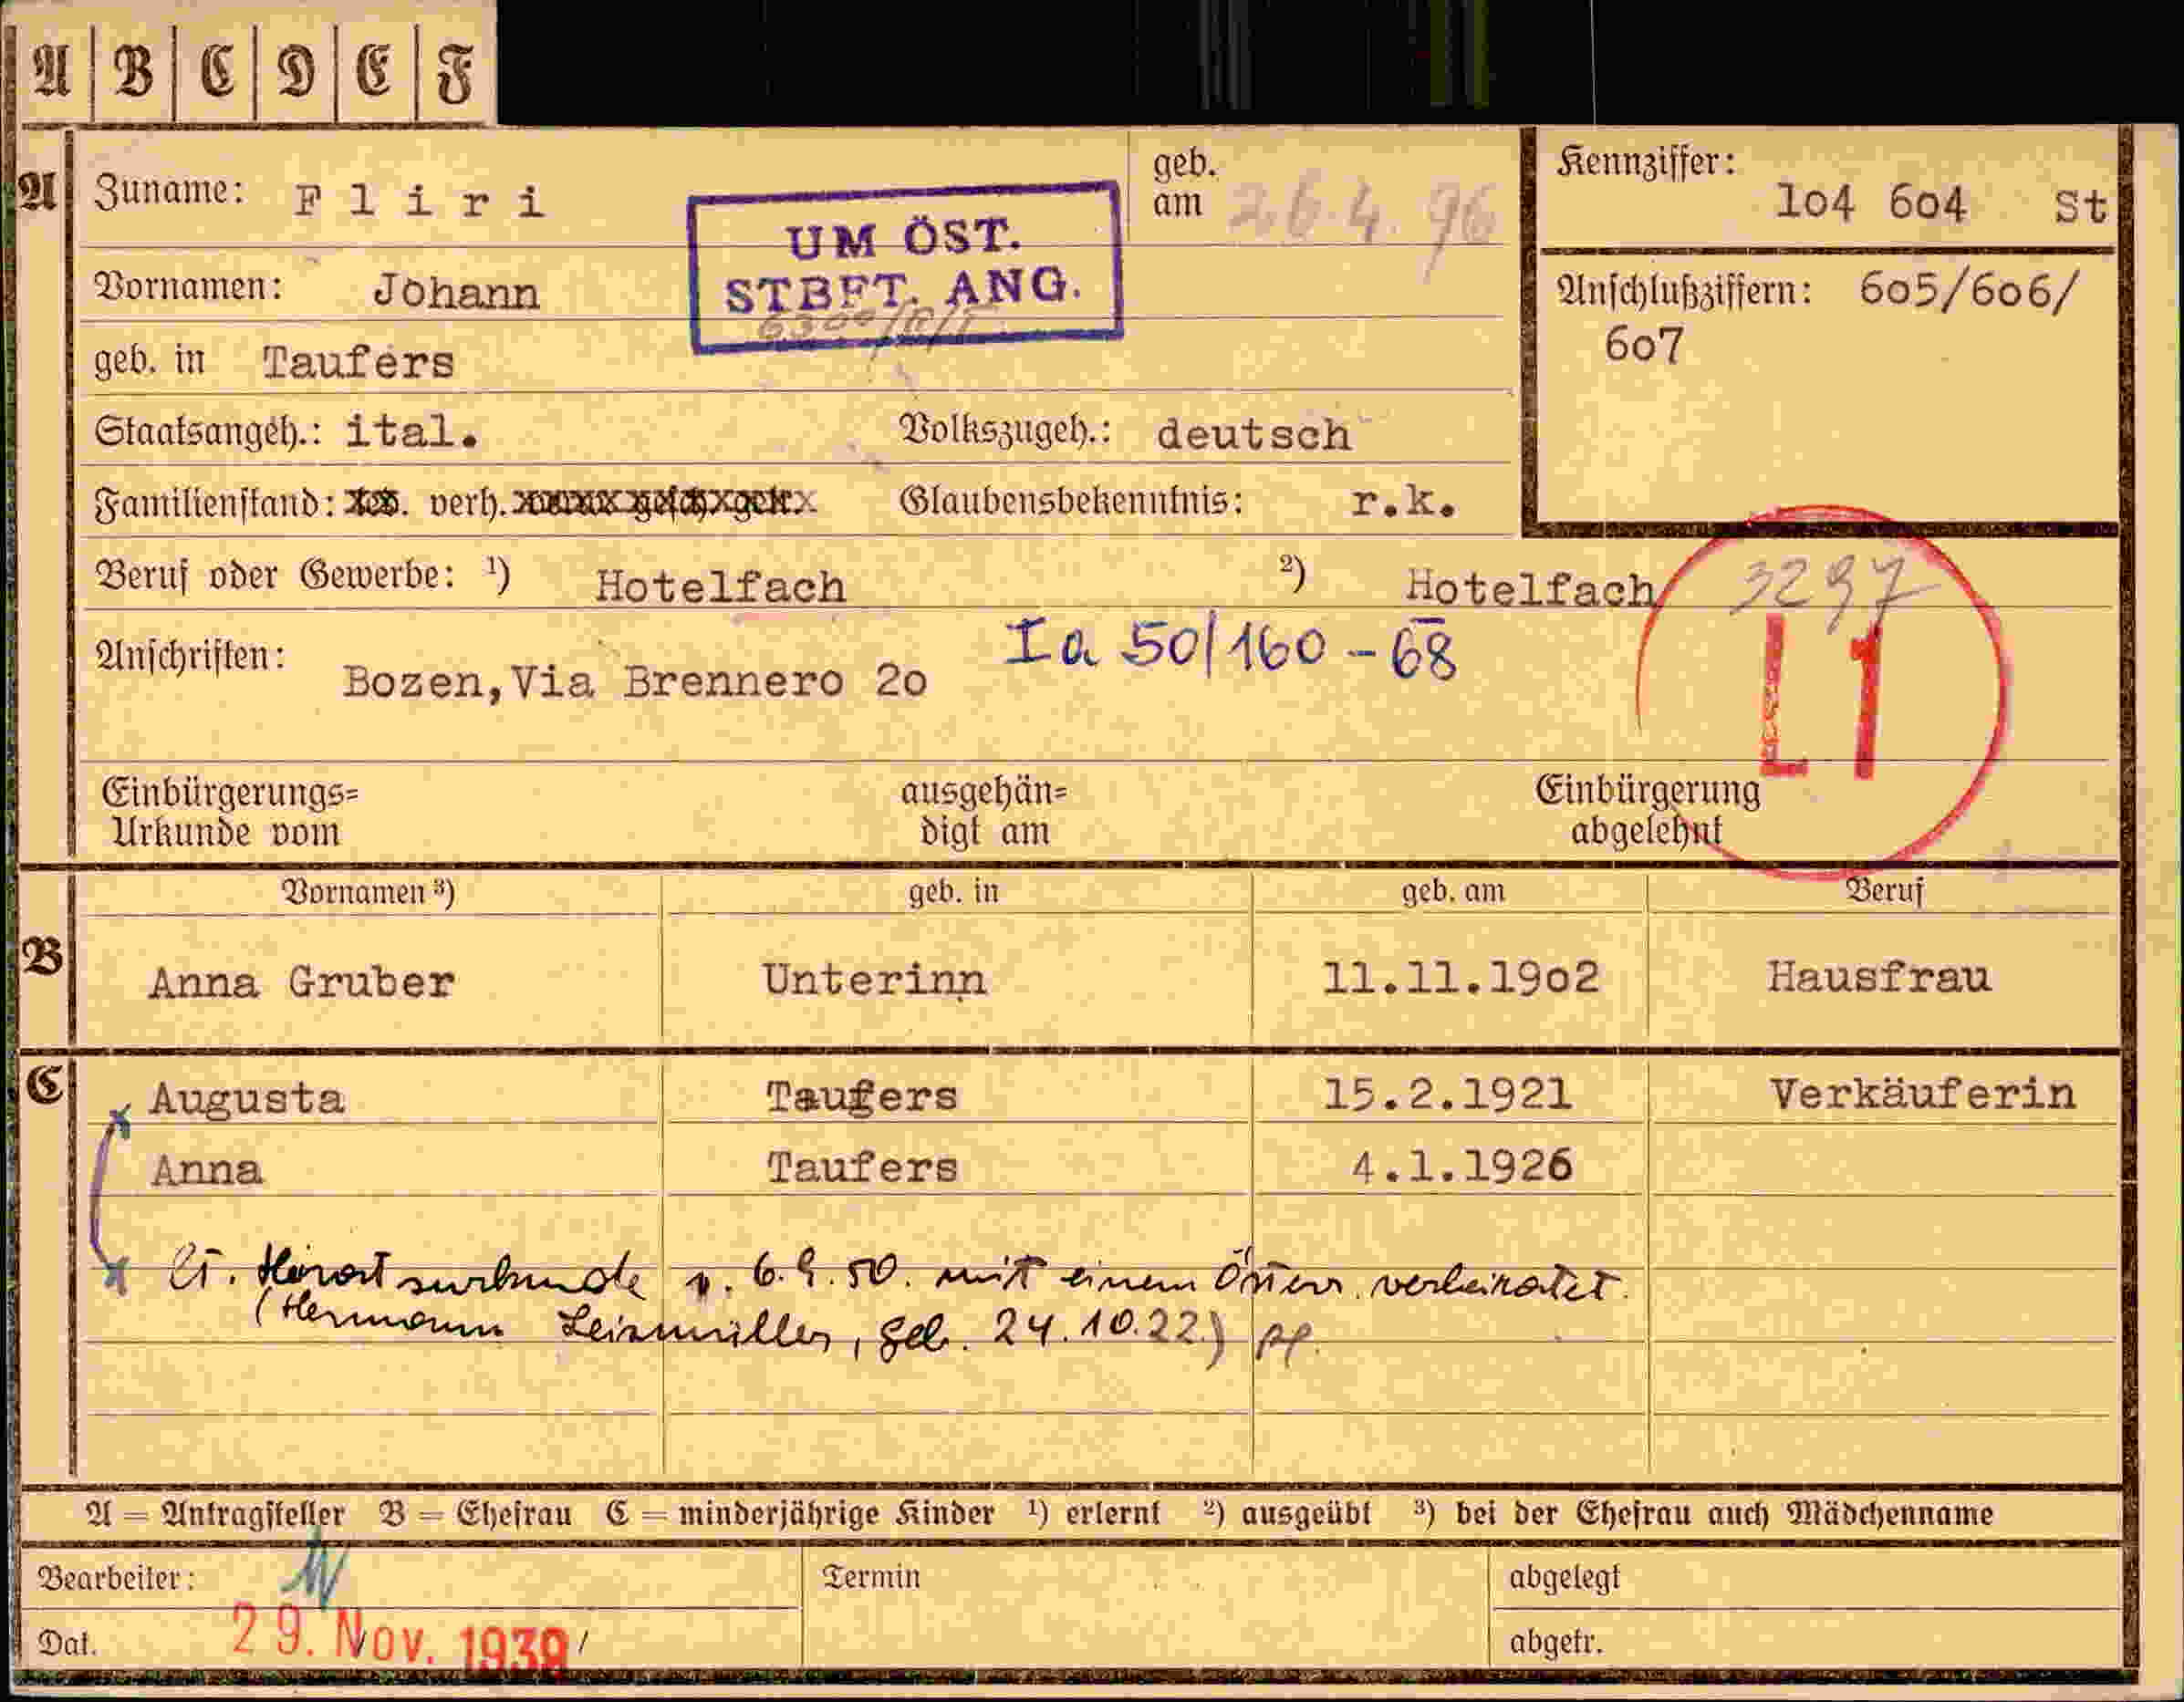 A B C D E F
A Zuname: Fliri
geb. am 26.4.96
Kennziffer: 104 604 St
UM ÖST.
STBFT. ANG.
Vornamen: Johann
Anschlußziffern: 605/606/
607
geb. in Taufers
Staatsangeh.: ital. Volkszugeh.: deutsch
Familienstand: verh. Glaubensbekenntnis: r.k.
Beruf oder Gewerbe: ¹) Hotelfach ²) Hotelfach
3297
L1
Anschriften: Bozen, Via Brennero 20
Ia 50/160-68
Einbürgerungs= ausgehän= Einbürgerung
Urkunde vom digt am abgelehnt
Vornamen ³) geb. in geb. am Beruf
B Anna Gruber Unterinn 11.11.1902 Hausfrau
C Augusta Taufers 15.2.1921 Verkäuferin
Anna Taufers 4.1.1926
x lt. Heiratsurkunde v. 6.9.50. mit einem Österr. verheiratet.
(Hermann Leizmüller, geb. 24.10.22.)
A = Antragsteller B = Ehefrau C = minderjährige Kinder ¹) erlernt ²) ausgeübt ³) bei der Ehefrau auch Mädchenname
Bearbeiter: Termin abgelegt
Dat. 29. Nov. 1939 abgetr.